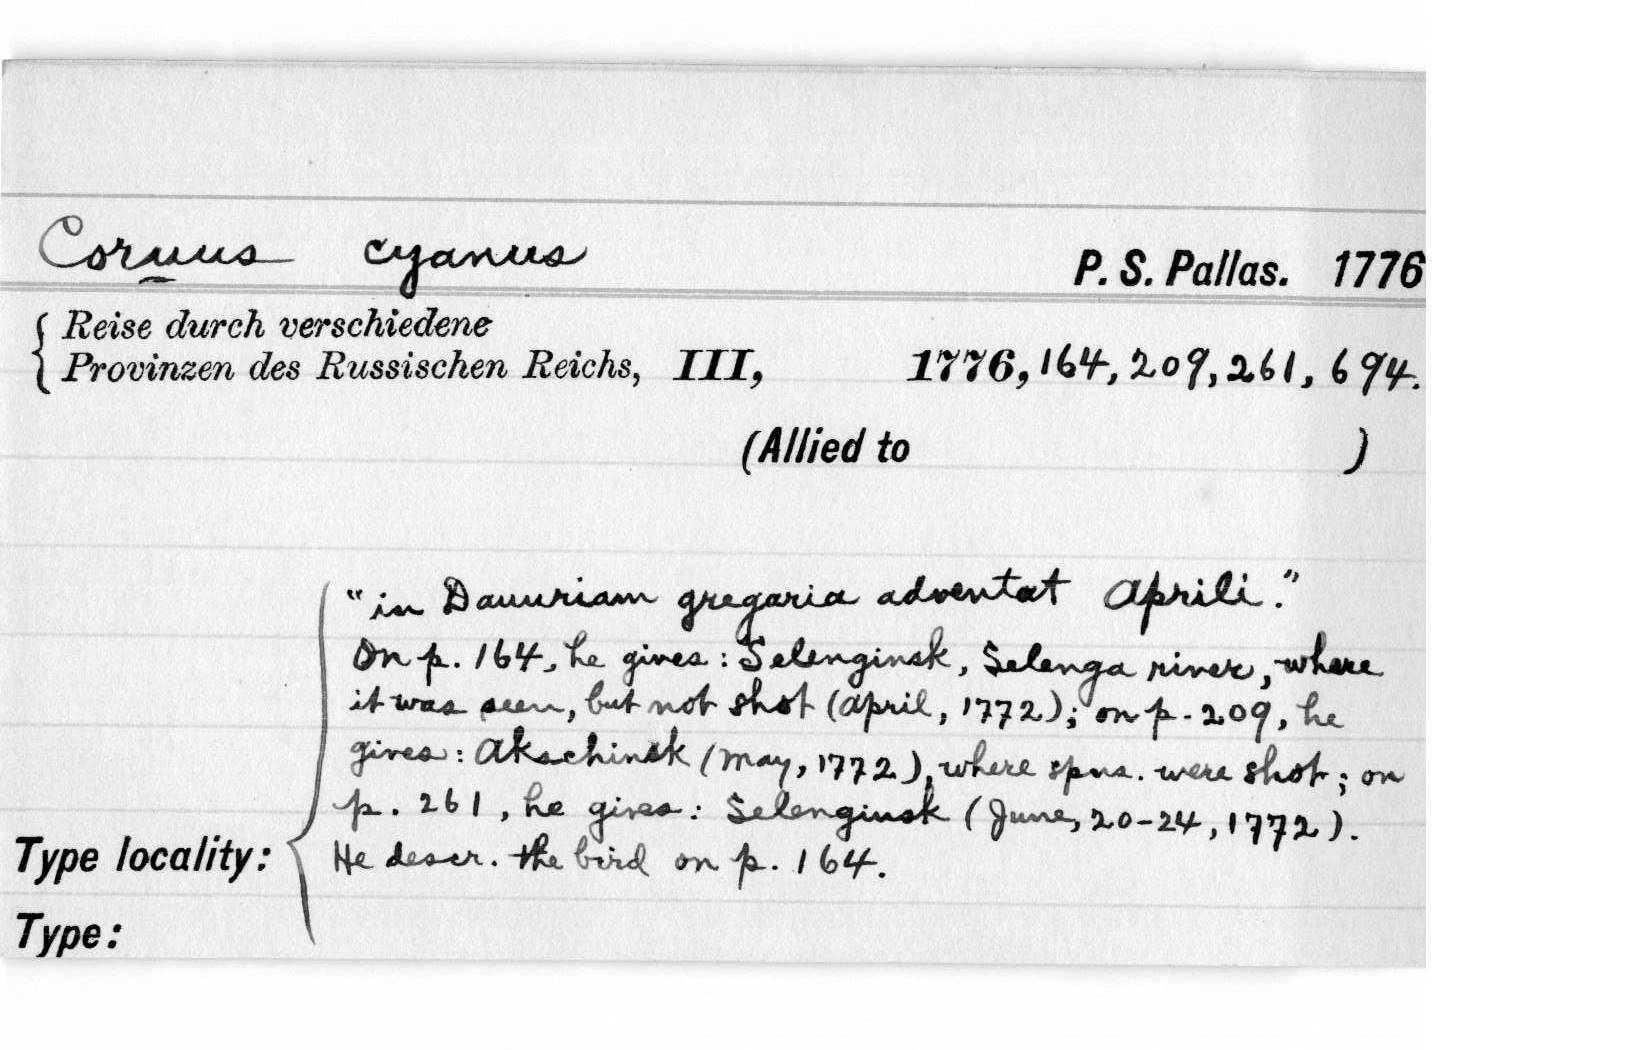 Corvus cyanus P. S. Pallas. 1776
Reise durch verschiedene
Provinzen des Russischen Reichs, III, 1776, 164, 209, 261, 694.
(Allied to )
"in Dauuriam gregaria adventat Aprili."
On p. 164, he gives: Selenginsk, Selenga river, where
it was seen, but not shot (April, 1772); on p. 209, he
gives: Akschinsk (May, 1772), where spns. were shot; on
p. 261, he gives: Selenginsk (June, 20-24, 1772).
Type locality: He descr. the bird on p. 164.
Type: